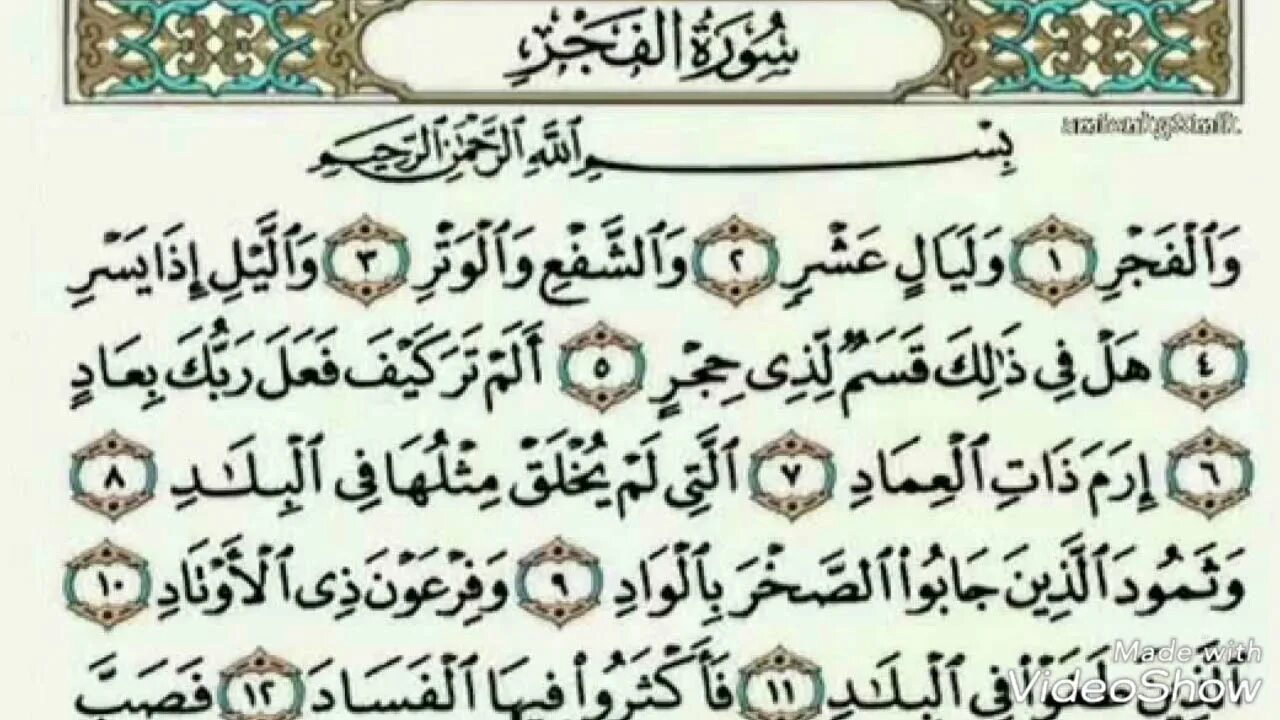 سُورَةُ الفَجْرِ
بِسْمِ ٱللَّهِ ٱلرَّحْمَٰنِ ٱلرَّحِيمِ
وَٱلْفَجْرِ ١ وَلَيَالٍ عَشْرٍ ٢ وَٱلشَّفْعِ وَٱلْوَتْرِ ٣ وَٱلَّيْلِ إِذَا يَسْرِ
٤ هَلْ فِي ذَٰلِكَ قَسَمٌ لِّذِى حِجْرٍ ٥ أَلَمْ تَرَ كَيْفَ فَعَلَ رَبُّكَ بِعَادٍ
٦ إِرَمَ ذَاتِ ٱلْعِمَادِ ٧ ٱلَّتِى لَمْ يُخْلَقْ مِثْلُهَا فِى ٱلْبِلَٰدِ ٨
وَثَمُودَ ٱلَّذِينَ جَابُوا۟ ٱلصَّخْرَ بِٱلْوَادِ ٩ وَفِرْعَوْنَ ذِى ٱلْأَوْتَادِ ١٠
ٱلَّذِينَ طَغَوْا۟ فِى ٱلْبِلَٰدِ ١١ فَأَكْثَرُوا۟ فِيهَا ٱلْفَسَادَ ١٢ فَصَبَّ
Made with
VideoShow